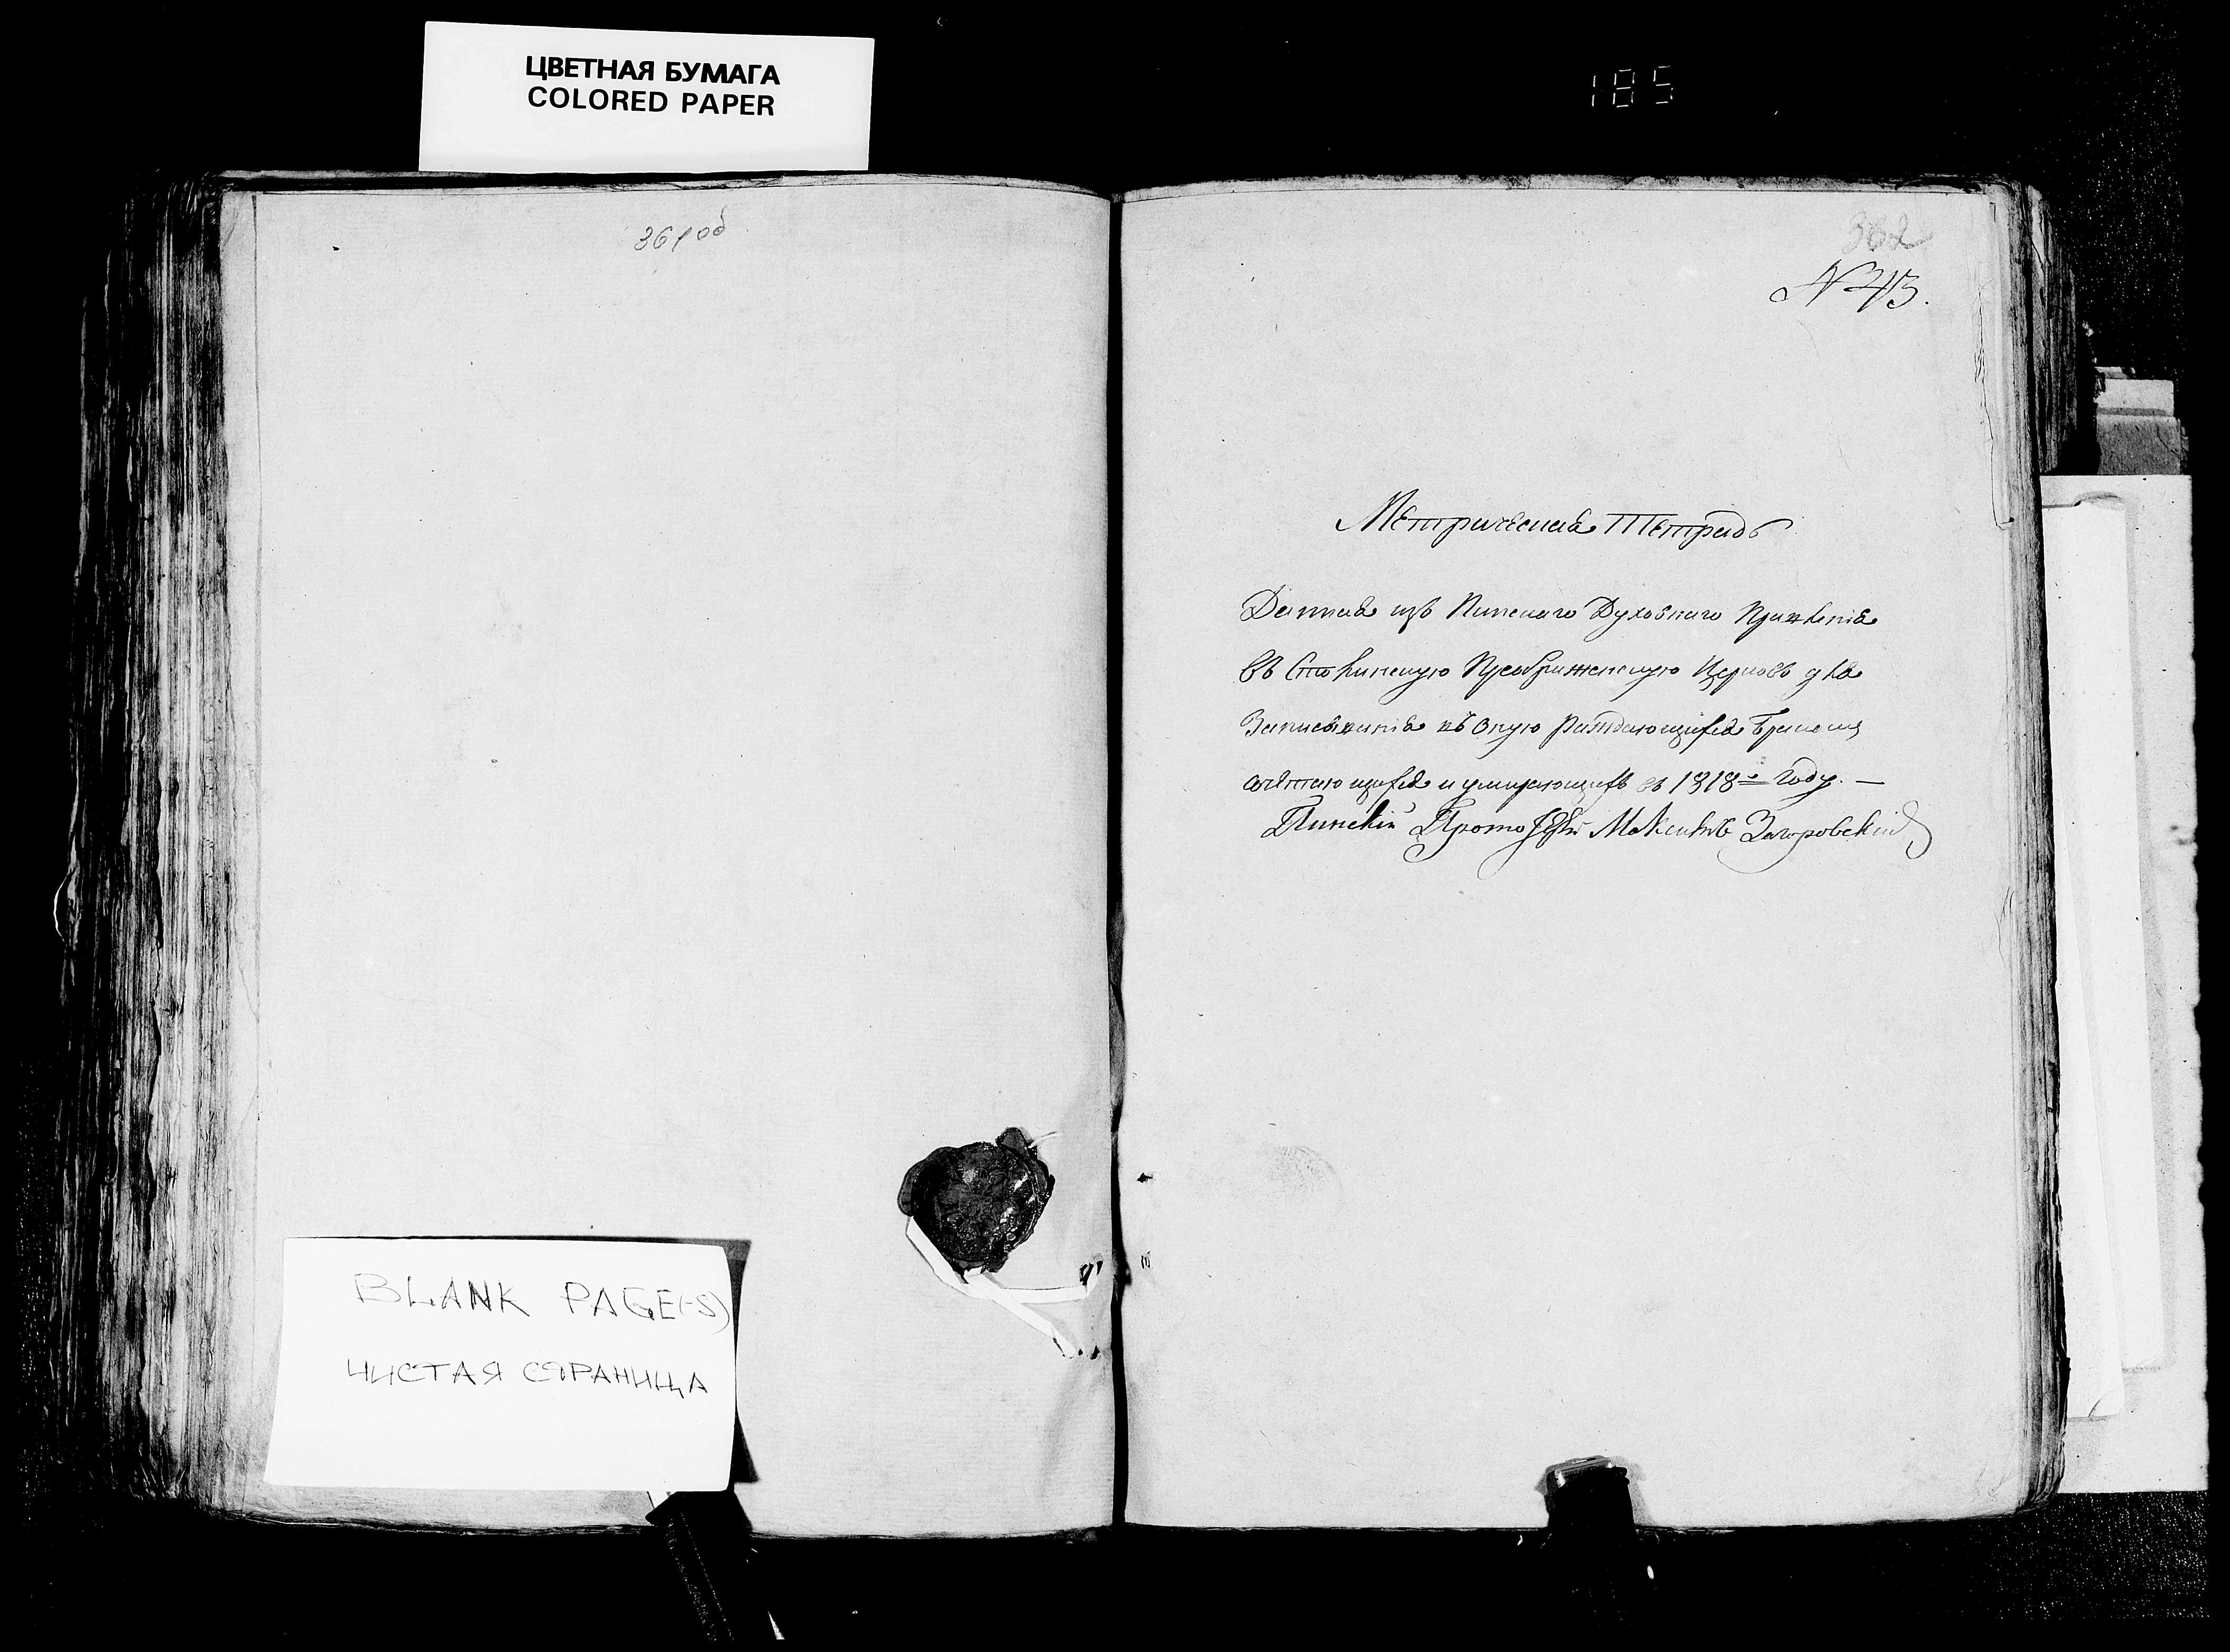 ЦВЕТНАЯ БУМАГА
COLORED PAPER
185
361об
362
N 43.
Метрическая Тетрадь
Данная изъ Пинскаго Духовнаго Правленія
въ Преображенскую Церковь для
Записыванія въ оную раждающихся бракомъ
сочѣтающихся и умирающихъ въ 1818=мъ Году. —
Пинскій Прото Загоровскій
BLANK PAGE(-S)
ЧИСТАЯ СТРАНИЦА